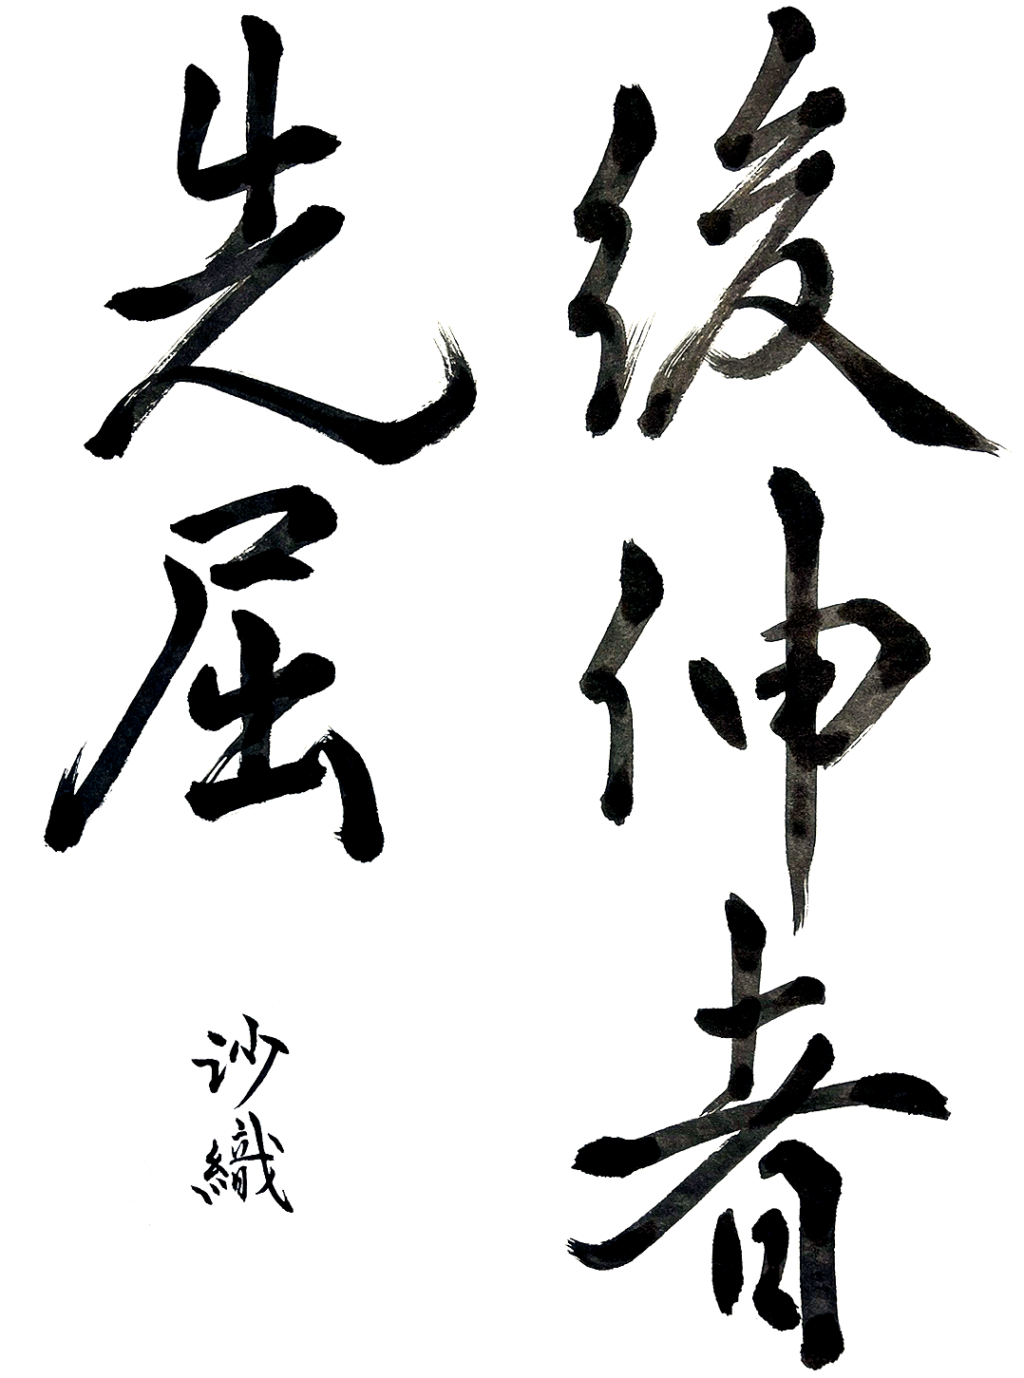 後伸者
先屈
沙織